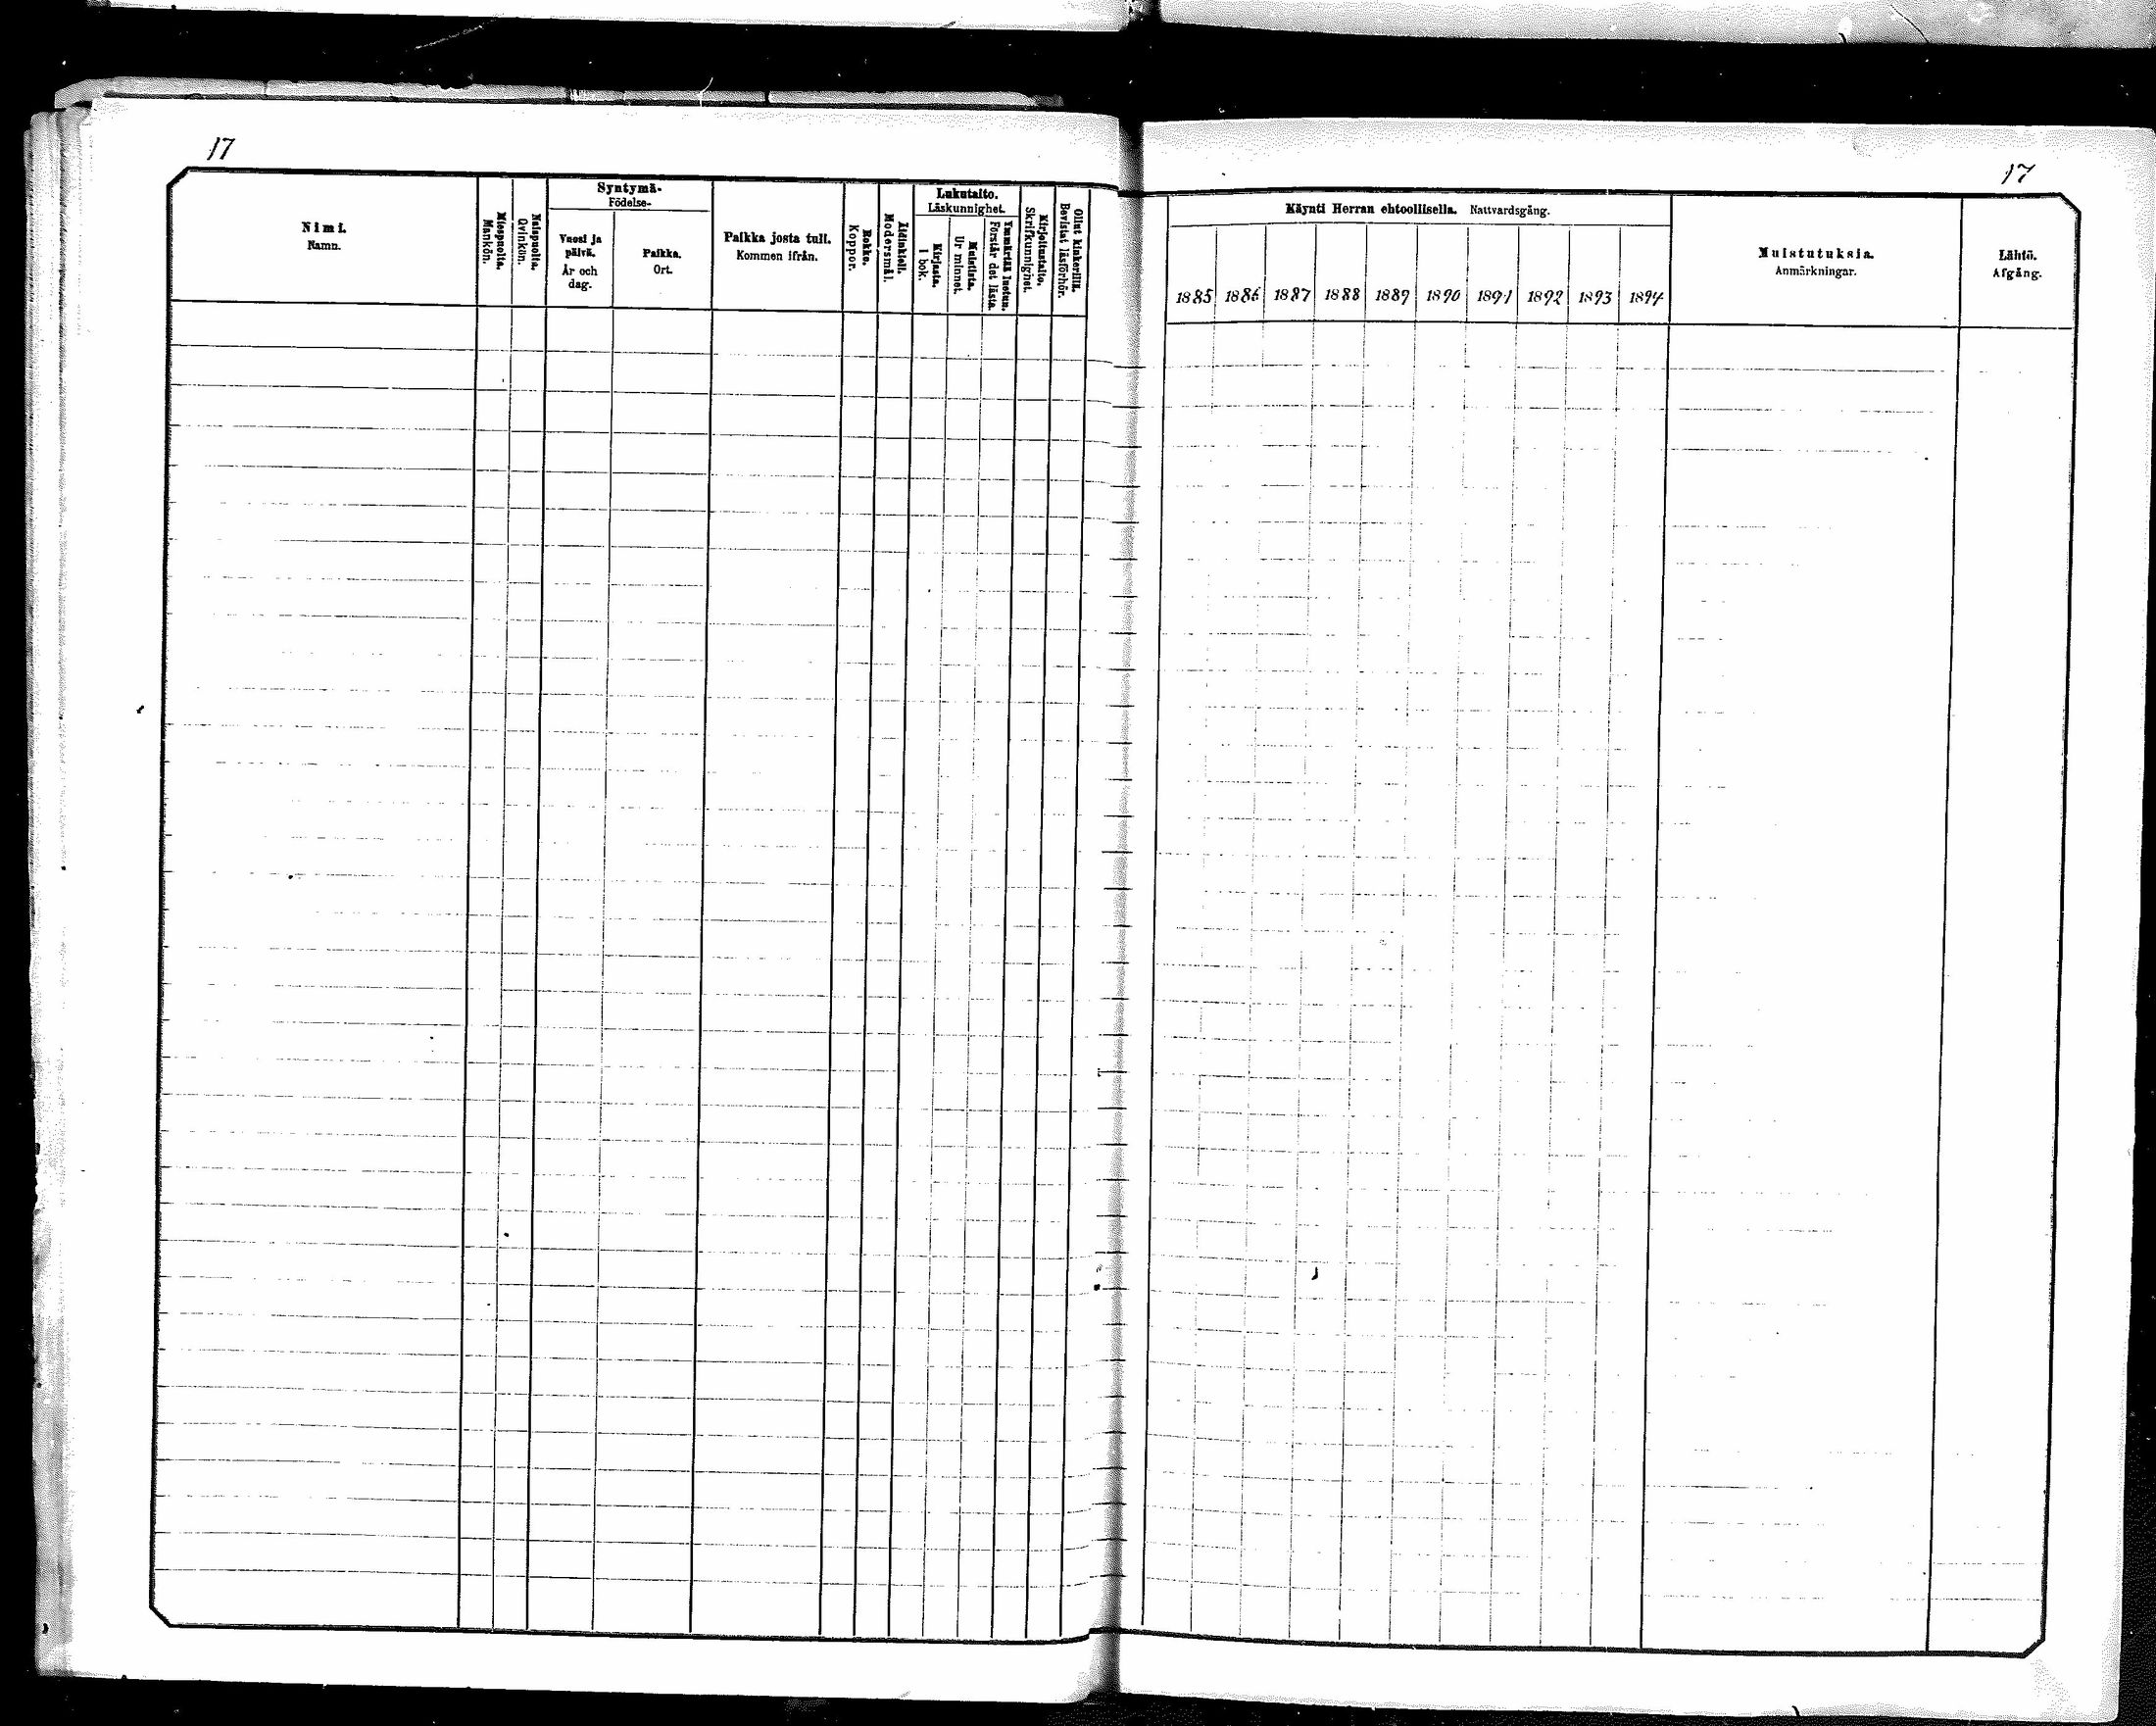 17
Nimi.
Namn.
Miespuolta.
Mankön.
Naispuolta.
Qvinkön.
Syntymä-
Födelse-
Vuosi ja
päivä.
År och
dag.
Paikka.
Ort.
Paikka josta tull.
Kommen ifrån.
Rokko.
Koppor.
Äidinkieli.
Modersmål.
Lukutaito.
Läskunnighet.
Kirjasta.
I bok.
Muistista.
Ur minnet.
Ymmärtää luetun.
Förstår det lästa.
Kirjoitustaito.
Skrifkunnighet.
Ollut kinkerillä.
Bevistat läsförhör.
17
Käynti Herran ehtoollisella. Nattvardsgång.
1885 1886 1887 1888 1889 1890 1891 1892 1893 1894
Muistutuksia.
Anmärkningar.
Lähtö.
Afgång.